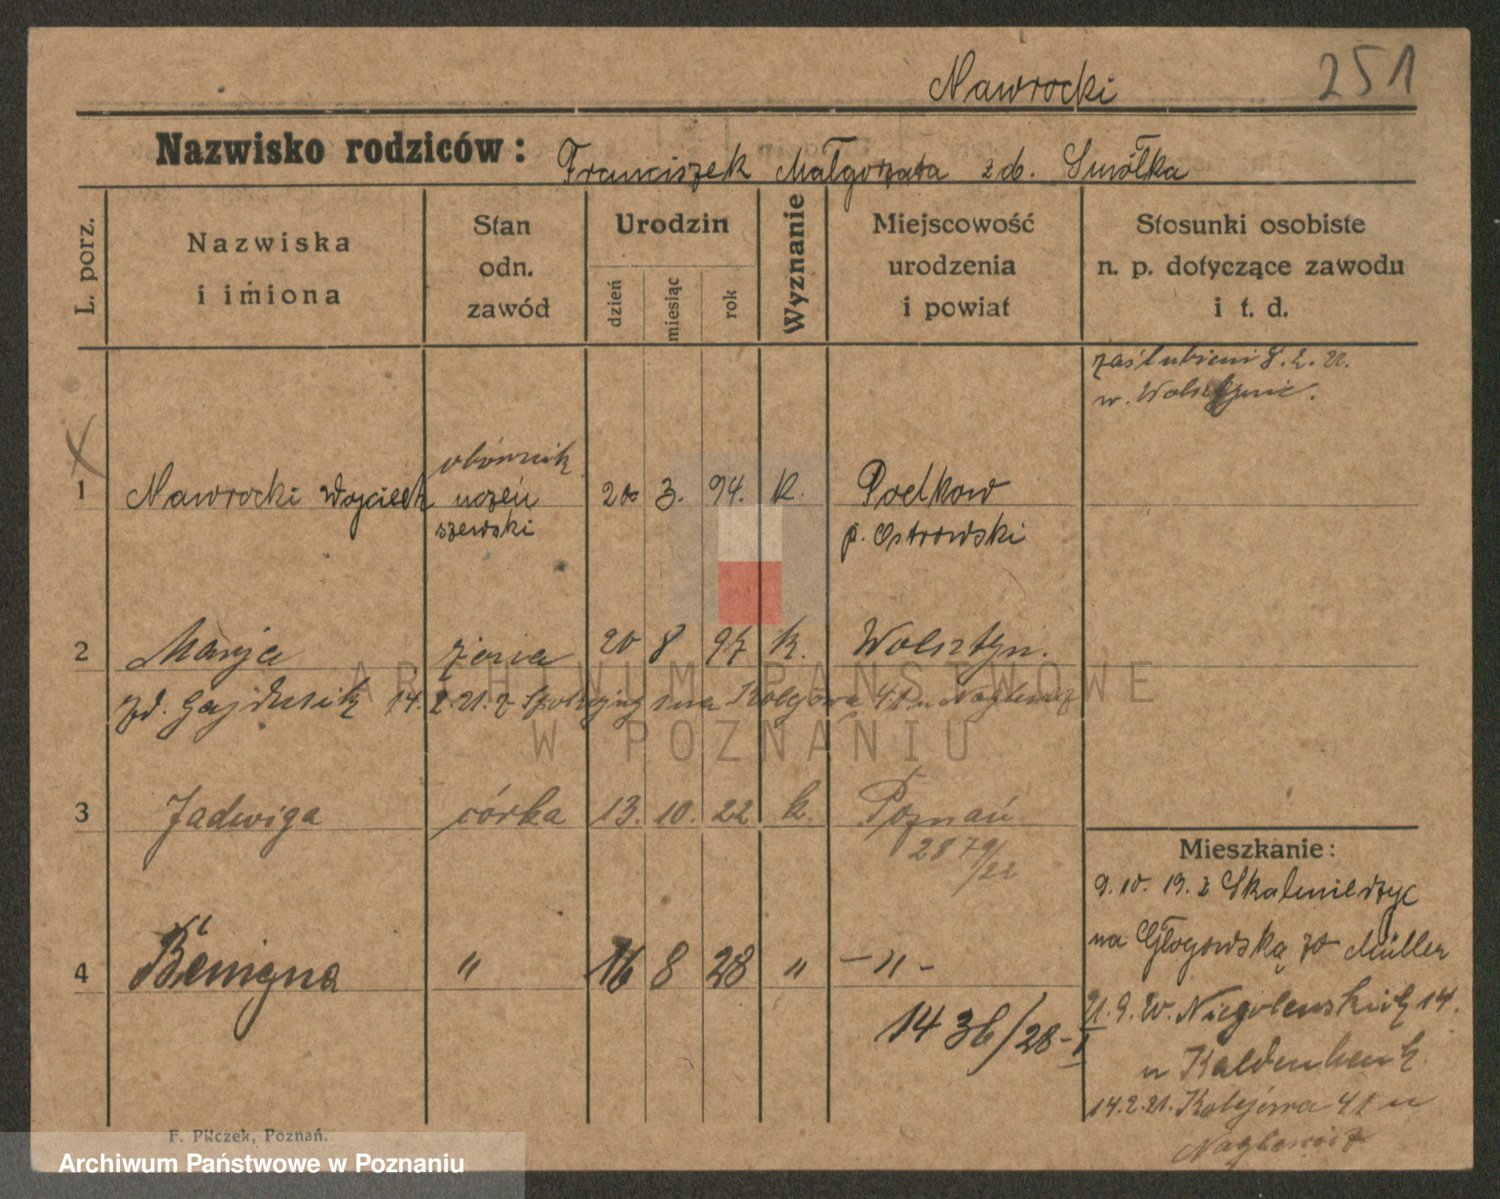 Nawrocki 251
Nazwisko rodziców: Franciszek Małgorzata z d. Smółka
L. porz.
Nazwiska i imiona
Stan odn. zawód
Urodzin
dzień
miesiąc
rok
Wyznanie
Miejscowość urodzenia i powiat
Stosunki osobiste n. p. dotyczące zawodu i t. d.
zaślubieni 8. 2. 21.
w. Wolsztynie.
robotnik
1 Nawrocki Wojciech uczeń 20 3. 94. k. Podkow
szewski p. Ostrowski
2 Marja żona 20 8 97 k. Wolsztyn.
zd. Gajdusik 14. 2. 21. z na Kolejową 41 u
ARCHIWUM PAŃSTWOWE
W POZNANIU
3 Jadwiga córka 13. 10. 22 k. Poznań
2879/22
Mieszkanie:
9. 10. 13. z Skalmierzyc
na Głogowską 70 Müller
4 Benigna " 16 8 28 " - " -
1436/28-I
21. 9. 20. Niegolewskich 14.
u
14. 2. 21. Kolejowa 41 u
F. Pilczek, Poznań.
Archiwum Państwowe w Poznaniu